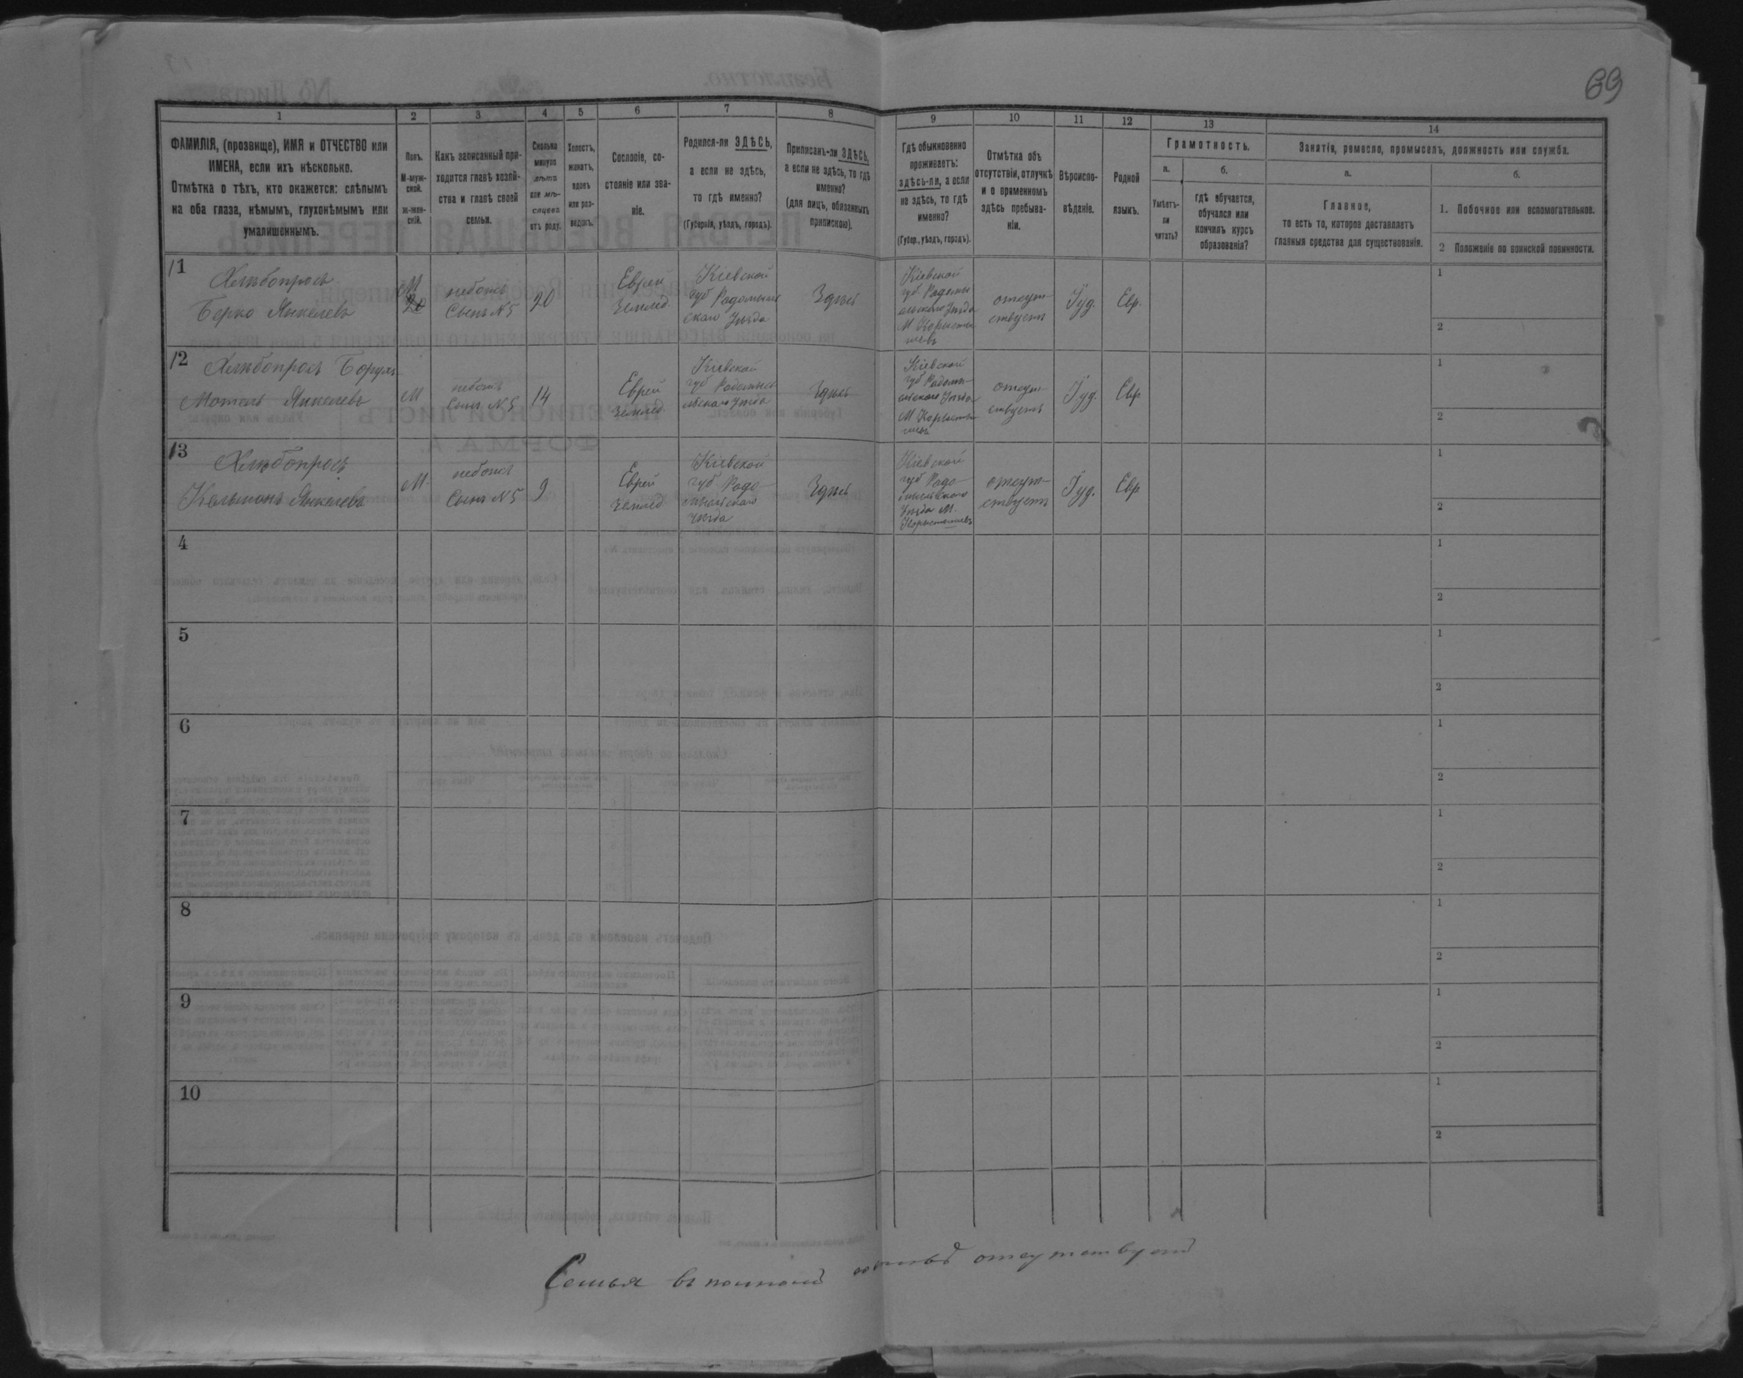 69
1
2
3
4
5
6
7
8
9
10
11
12
13
14
ФАМИЛІЯ, (прозвище), ИМЯ и ОТЧЕСТВО или
ИМЕНА, если ихъ нѣсколько.
Отмѣтка о тѣхъ, кто окажется: слѣпымъ
на оба глаза, нѣмымъ, глухонѣмымъ или
умалишеннымъ.
Полъ.
М-муж-
ской.
Ж-жен-
скій.
Какъ записанный при-
ходится главѣ хозяй-
ства и главѣ своей
семьи.
Сколько
минуло
лѣтъ
или мѣ-
сяцевъ
отъ роду.
Холостъ,
женатъ,
вдовъ
или раз-
веденъ.
Сословіе, со-
стояніе или зва-
ніе.
Родился-ли ЗДѢСЬ,
а если не здѣсь,
то гдѣ именно?
(Губернія, уѣздъ, городъ).
Приписанъ-ли ЗДѢСЬ,
а если не здѣсь, то гдѣ
именно?
(для лицъ, обязанныхъ
припискою).
Гдѣ обыкновенно
проживаетъ:
здѣсь-ли, а если
не здѣсь, то гдѣ
именно?
(Губер., уѣздъ, городъ).
Отмѣтка объ
отсутствіи, отлучкѣ
и о временномъ
здѣсь пребыва-
ніи.
Вѣроиспо-
вѣданіе.
Родной
языкъ.
Грамотность.
а.
Умѣетъ-
ли
читать?
б.
гдѣ обучается,
обучался или
кончилъ курсъ
образованія?
Занятія, ремесло, промыселъ, должность или служба.
а.
Главное,
то есть то, которое доставляетъ
главныя средства для существованія.
б.
1. Побочное или вспомогательное.
2 Положеніе по воинской повинности.
11
Хлѣбопросъ
Берко Янкелевъ
М
небожъ
Сынъ №5
20
Еврей
Землед
Кіевской
губ Радомыль
скаго Уѣзда
Здѣсь
Кіевской
губ Радомы
льскаго Уѣзда
М Коросты
шевъ
отсут-
ствуетъ
Іуд.
Евр.
1
2
12
Хлѣбопросъ Борухъ
Мотель Янкелевъ
М
Сынъ №5
14
Еврей
Землед
Кіевской
губ Радомыс
льскаго Уѣзда
Здѣсь
Кіевской
губ Радомы-
льскаго Уѣзда
М Коросты
шевъ
отсут-
ствуетъ
Іуд.
Евр
1
2
13
Хлѣбопросъ
Кельманъ Янкелевъ
М
Сынъ №5
9
Еврей
Землед
Кіевской
губ Радо-
мысльскаго
Уѣзда
Здѣсь
Кіевской
губ Радо-
мысльскаго
Уѣзда М.
Коростышевъ
отсут-
ствуетъ
Іуд.
Евр
1
2
4
1
2
5
1
2
6
1
2
7
1
2
8
1
2
9
1
2
10
1
2
Семья въ полномъ составѣ отсутствуетъ